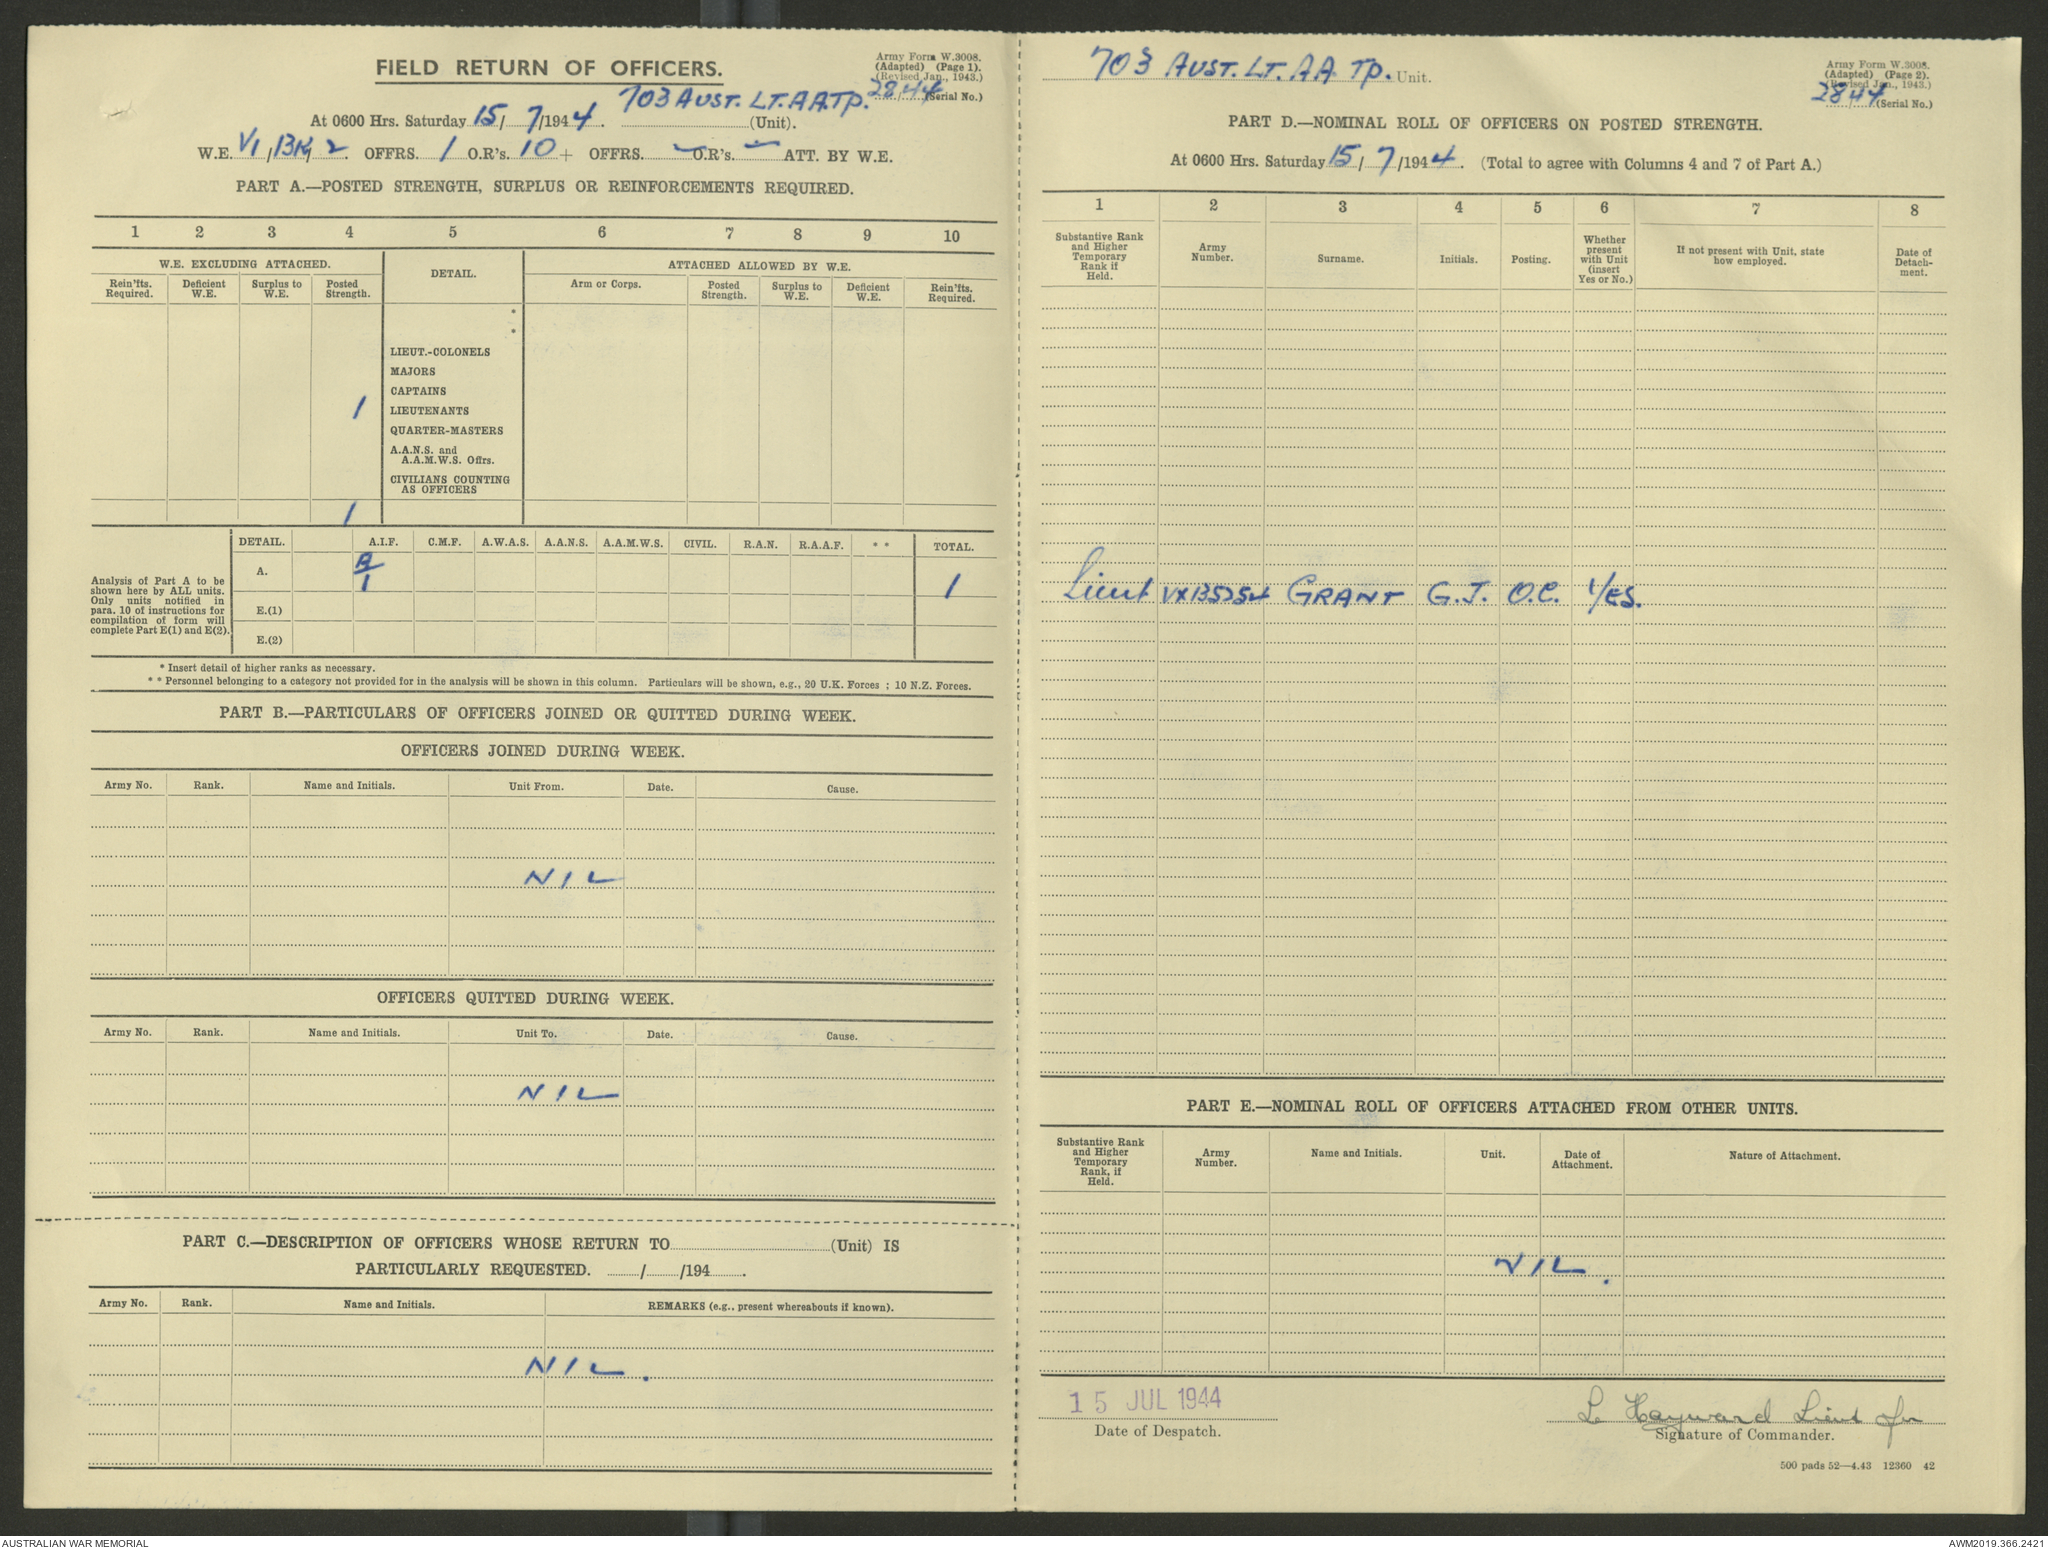 FIELD RETURN OF OFFICERS.
Army Form W.3008.
(Adapted) (Page 1).
(Revised Jan., 1943.)
28/44 (Serial No.)
At 0600 Hrs. Saturday 15/7/1944. 703 AUST. LT. A A. TP. (Unit).
W.E. VI/13K/2. OFFRS. 1 O.R's. 10 + OFFRS. — O.R's. — ATT. BY W.E.
PART A.—POSTED STRENGTH, SURPLUS OR REINFORCEMENTS REQUIRED.
1 2 3 4 5 6 7 8 9 10
W.E. EXCLUDING ATTACHED. DETAIL. ATTACHED ALLOWED BY W.E.
Rein'fts. Required. Deficient W.E. Surplus to W.E. Posted Strength. Arm or Corps. Posted Strength. Surplus to W.E. Deficient W.E. Rein'fts. Required.
*
*
LIEUT.-COLONELS
MAJORS
CAPTAINS
1 LIEUTENANTS
QUARTER-MASTERS
A.A.N.S. and
A.A.M.W.S. Offrs.
CIVILIANS COUNTING
AS OFFICERS
1
DETAIL. A.I.F. C.M.F. A.W.A.S. A.A.N.S. A.A.M.W.S. CIVIL. R.A.N. R.A.A.F. * * TOTAL.
Analysis of Part A to be
shown here by ALL units.
Only units notified in
para. 10 of instructions for
compilation of form will
complete Part E(1) and E(2).
A. 1 1
E.(1)
E.(2)
* Insert detail of higher ranks as necessary.
* * Personnel belonging to a category not provided for in the analysis will be shown in this column. Particulars will be shown, e.g., 20 U.K. Forces ; 10 N.Z. Forces.
PART B.—PARTICULARS OF OFFICERS JOINED OR QUITTED DURING WEEK.
OFFICERS JOINED DURING WEEK.
Army No. Rank. Name and Initials. Unit From. Date. Cause.
NIL
OFFICERS QUITTED DURING WEEK.
Army No. Rank. Name and Initials. Unit To. Date. Cause.
NIL
PART C.—DESCRIPTION OF OFFICERS WHOSE RETURN TO (Unit) IS
PARTICULARLY REQUESTED. / /194 .
Army No. Rank. Name and Initials. REMARKS (e.g., present whereabouts if known).
NIL.
703 AUST. LT. A A TP. Unit.
Army Form W.3008.
(Adapted) (Page 2).
(Revised Jan., 1943.)
28/44 (Serial No.)
PART D.—NOMINAL ROLL OF OFFICERS ON POSTED STRENGTH.
At 0600 Hrs. Saturday 15/7/1944. (Total to agree with Columns 4 and 7 of Part A.)
1 2 3 4 5 6 7 8
Substantive Rank and Higher Temporary Rank if Held. Army Number. Surname. Initials. Posting. Whether present with Unit (insert Yes or No.) If not present with Unit, state how employed. Date of Detach-ment.
Lieut GRANT G.J. O.C. YES.
PART E.—NOMINAL ROLL OF OFFICERS ATTACHED FROM OTHER UNITS.
Substantive Rank and Higher Temporary Rank, if Held. Army Number. Name and Initials. Unit. Date of Attachment. Nature of Attachment.
NIL.
15 JUL 1944
Date of Despatch.
L Hayward Lieut for
Signature of Commander.
500 pads 52—4.43 12360 42
AUSTRALIAN WAR MEMORIAL
AWM2019.366.2421